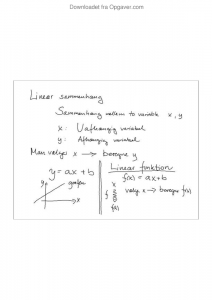 Downloadet fra Opgaver.com
Lineær sammenhæng
Sammenhæng mellem to variable x, y
x: Uafhængig variabel
y: Afhængig variabel
Man vælger x → beregne y
y = ax + b
y
grafen
x
Lineær funktion
f(x) = ax + b
x
f
f(x)
vælge x → beregne f(x)